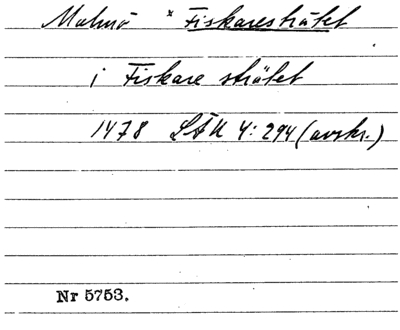 Malmö × Fiskaresträtet
i Fiskare strätet
1478 LÄU 4: 294 (avskr.)
Nr 5753.